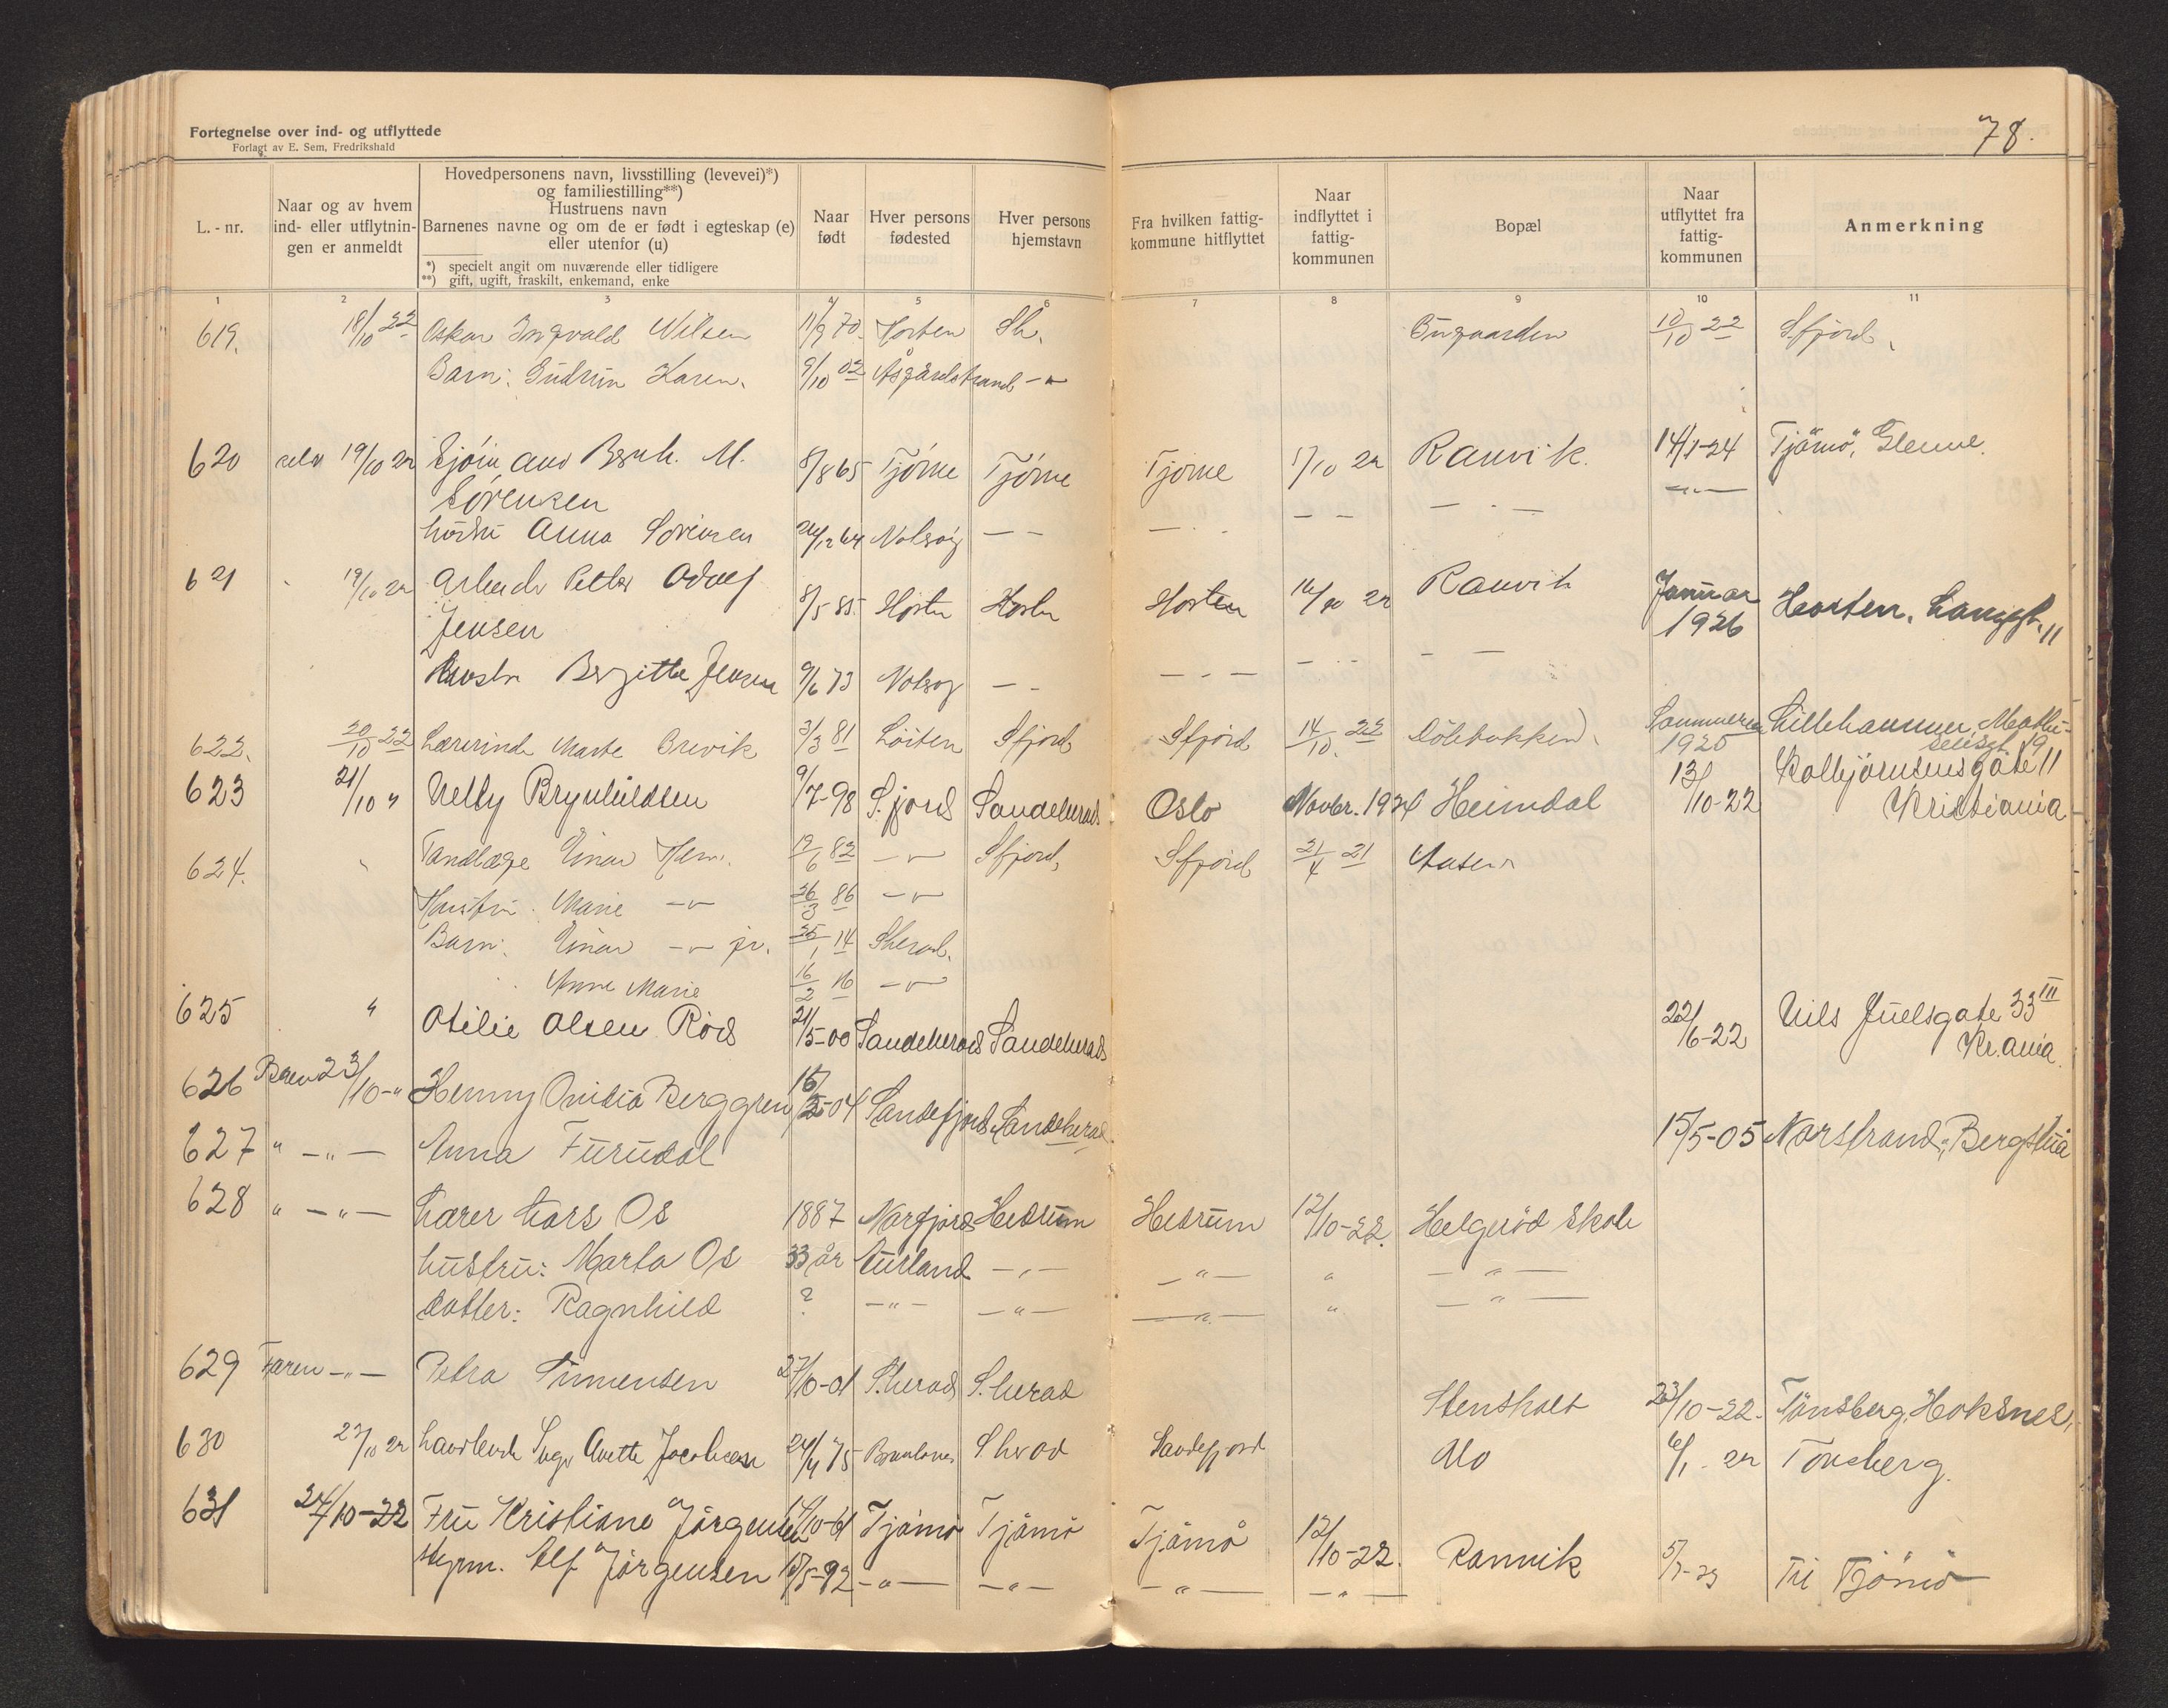 Fortegnelse over ind- og utflyttede
Forlagt av E. Sem, Fredrikshald
78.
L.-nr.
Naar og av hvem ind- eller utflytningen er anmeldt
Hovedpersonens navn, livsstilling (levevei)*) og familiestilling**)
Hustruens navn
Barnenes navne og om de er født i egteskap (e) eller utenfor (u)
*) specielt angit om nuværende eller tidligere
**) gift, ugift, fraskilt, enkemand, enke
Naar født
Hver persons fødested
Hver persons hjemstavn
Fra hvilken fattigkommune hitflyttet
Naar indflyttet i fattigkommunen
Bopæl
Naar utflyttet fra fattigkommunen
Anmerkning
1 2 3 4 5 6 7 8 9 10 11
619. 18/10 22 Oskar Ingvald Nilsen 11/9 70. Horten Sh. Bugaarden 10/10 22 Sfjord.
Barn: Gudrun Karen. 9/10 02 Åsgårdstrand -"-
620 selv 19/10 22 Sjöm and Bernh. M. 8/8 65 Tjöme Tjöme Tjöme 1/10 22 Ranvik. 14/1-24 Tjömö, Glenne.
Sörensen
hustru Anna Sörensen 24/12 64 Notsöy — — — — — — — — -"-
621 " 19/10 22 Arbeider Petter Adolf 8/5 85. Horten Horten Horten 14/10 22 Ranvik Januar 1926 Horten. Langgt. 11
Jensen
Hustru Bergitte Jensen 9/6 73 Notsoy — — — — — — — — —
622. 20/10 22 Lærerinde Marte Brevik 3/3 81 Löiten Sfjord Sfjord 14/10. 22 Dölebakken. Sommeren 1925 Lillehammer, Mathiselisgt. 19
623 21/10 " Nelly Brynhildsen 9/7-98 S.fjord Sandeherad Oslo Novbr. 1924 Heimdal 13/10-22 Kolbjørnsensgate 11
Kristiania
624. " Tandlæge Einar Hem. 12/6 82 -"- Sfjord, Sfjord 21/4 21 Aasen
Hustru: Marie -"- 26/3 86 -"-
Barn: Einar -"- jr. 25/1 14 Sherad.
Anne Marie 16/2 16 -"-
625 " Otilie Olsen Röd 21/5-00 Sandeherad Sandeherad 22/6-22 Nils Juelsgate 33 III
Kr.ania.
626 23/10-" Henny Ovidia Berggren 16/2-04 Sandefjord Sandeherad.
627 " -"- Anna Furudal 15/5-05 Norstrand, "Bergstua
628 " -"- Lærer Lars Os 1887 Norfjord Hedrum Hedrum 12/10-22. Helgeröd Skole
hustru: Marta Os 33 år Aurland -"- -"- " -"-
datter: Ragnhild ? -"- -"- -"- " -"-
629 Faren -"- Petra Simensen 27/10-01 S.herad S.herad Stensholt 23/10-22. Tönsberg, Hoksnes.
630 27/10 22 Inga Anette Jacobsen 24/4 75 Brunlanes S.herad Sandefjord Mo 6/1 22 Tönsberg.
631 24/10-22 Fru Kristiane Jörgensen 14/10-61 Tjömö Tjömö Tjömö 12/10-22. Ranvik 5/7-23 Til Tjömö
styrm. Alf Jörgensen 15/5-92 -"- -"- -"- -"-